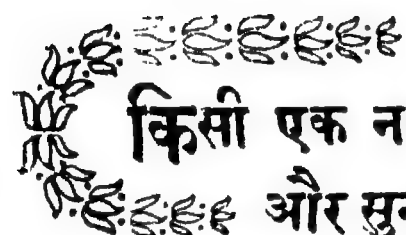 किसी एक न
और सु